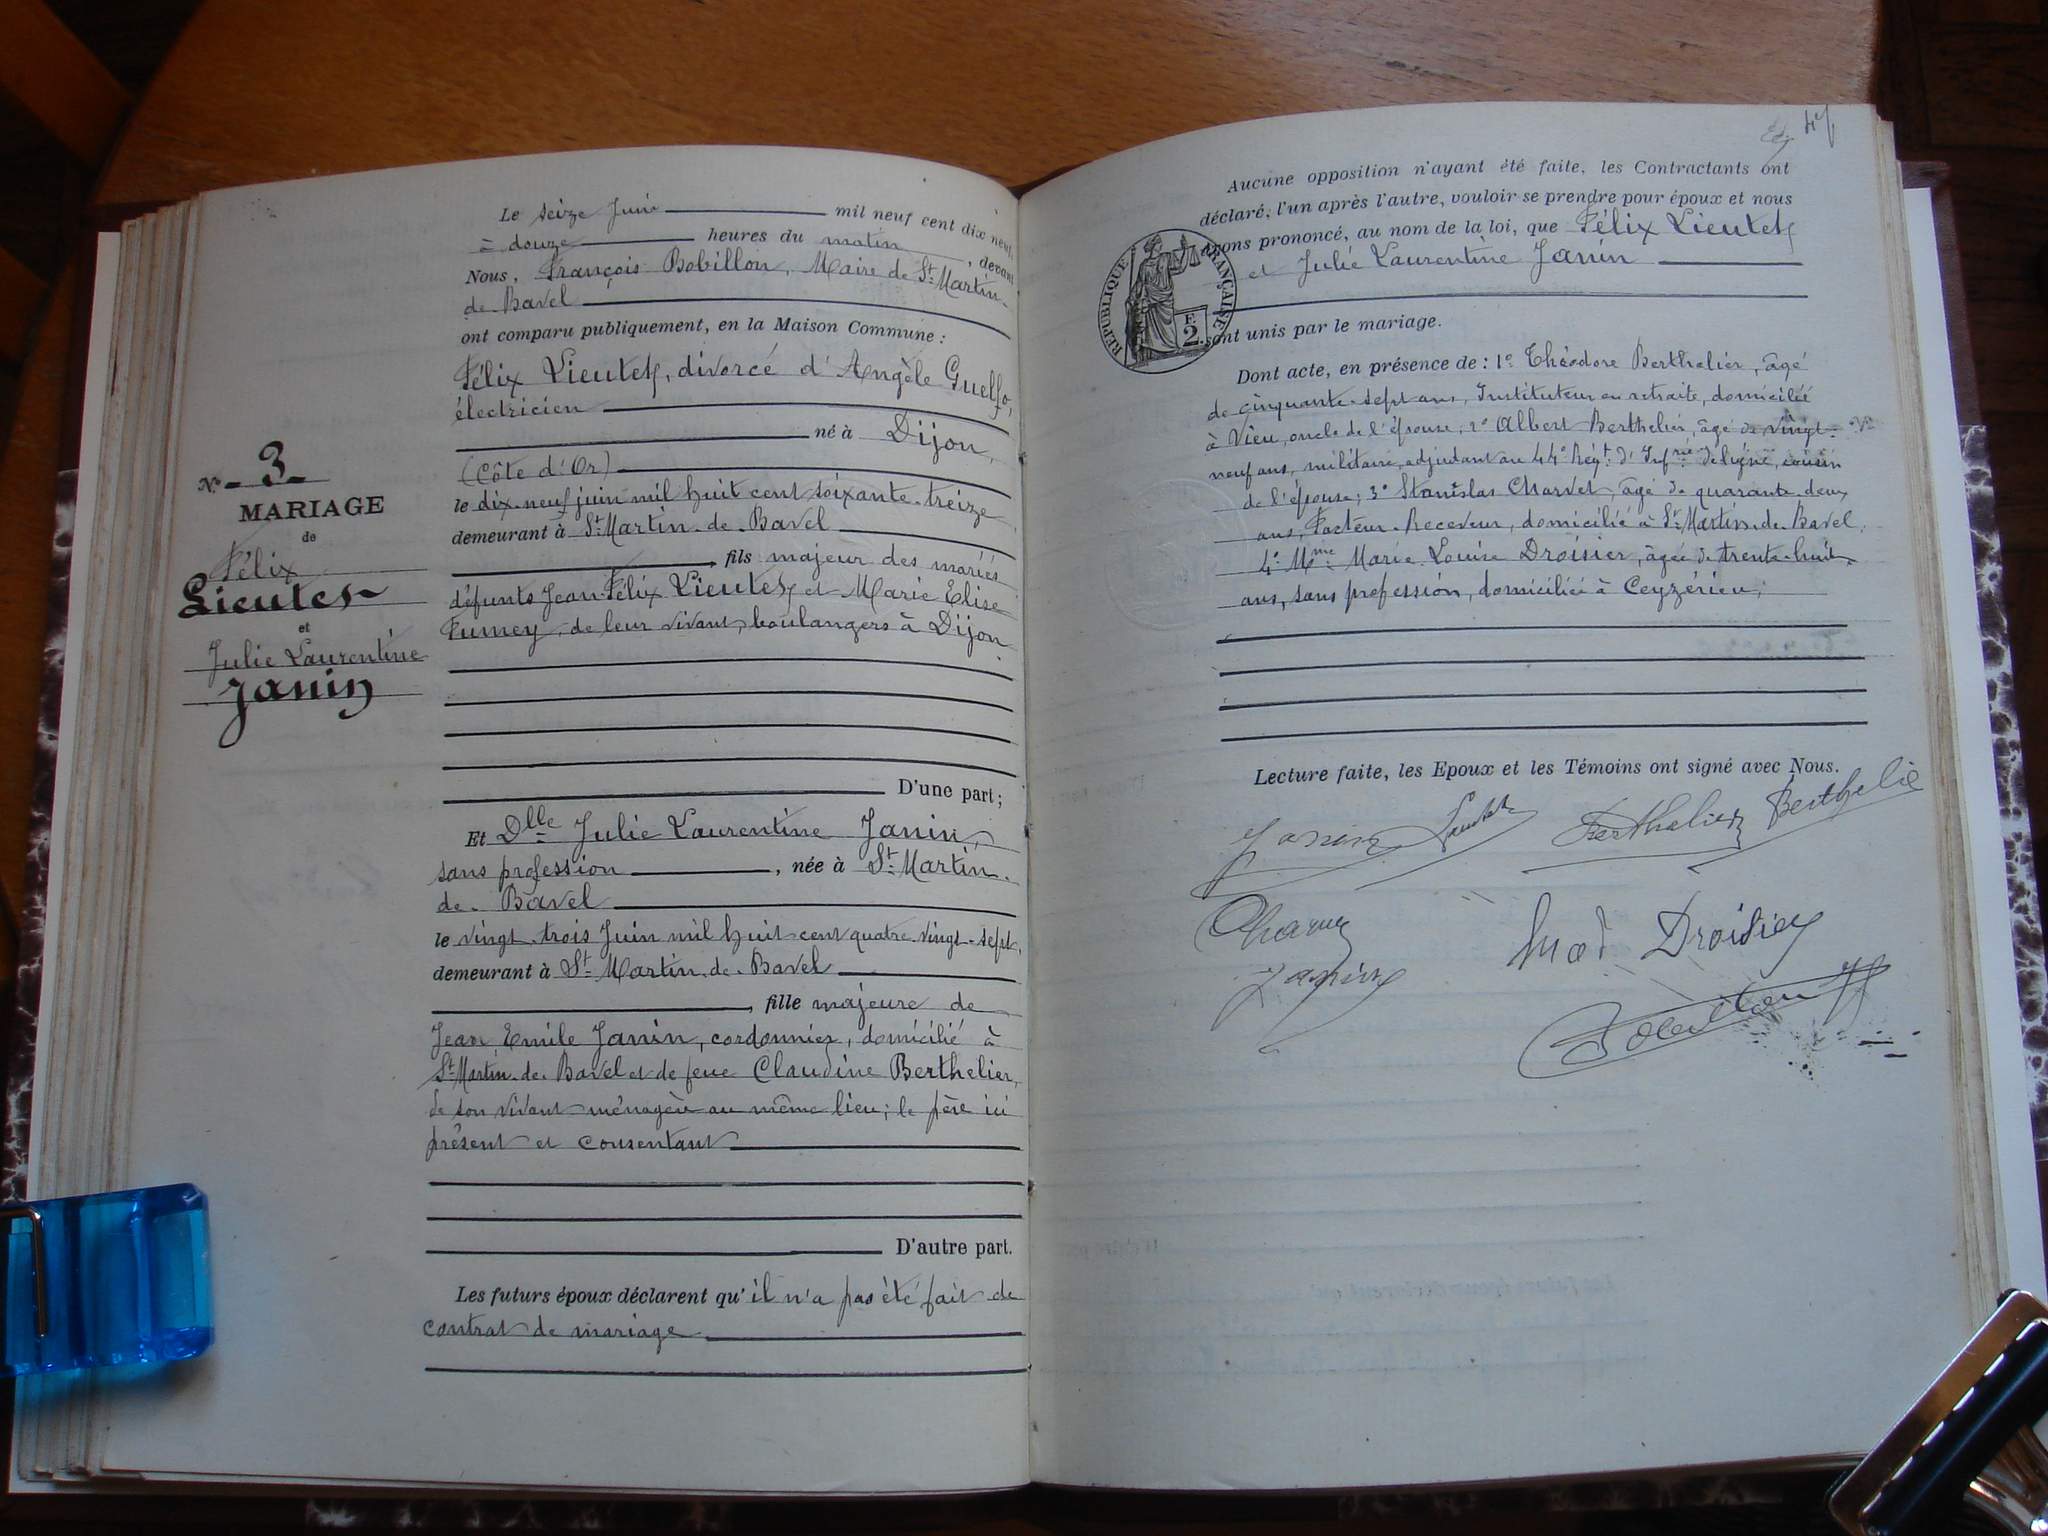 Le seize Juin mil neuf cent dix neuf,
à douze heures du matin, devant
Nous, François Bobillon, Maire de St Martin-
de-Bavel
ont comparu publiquement, en la Maison Commune :
Félix Lieutet, divorcé d'Angèle Guelfo,
électricien
né à Dijon,
(Côte d'Or)
le dix-neuf juin mil huit cent soixante-treize
demeurant à St Martin-de-Bavel
, fils majeur des mariés
défunts Jean-Félix Lieutet et Marie Elise
Fumey, de leur vivant, boulangers à Dijon
D'une part ;
Et Dlle Julie Laurentine Janin,
sans profession, née à St Martin-
de-Bavel
le vingt-trois Juin mil huit cent quatre-vingt-sept,
demeurant à St Martin-de-Bavel
, fille majeure de
Jean Emile Janin, cordonnier, domicilié à
St Martin-de-Bavel et de feue Claudine Berthelier,
de son vivant ménagère au même lieu; le père ici
présent et consentant
D'autre part.
Les futurs époux déclarent qu'il n'a pas été fait de
contrat de mariage
N° 3
MARIAGE
de
Félix
Lieutet
et
Julie Laurentine
Janin
47
Aucune opposition n'ayant été faite, les Contractants ont
déclaré, l'un après l'autre, vouloir se prendre pour époux et nous
avons prononcé, au nom de la loi, que Félix Lieutet
et Julie Laurentine Janin
sont unis par le mariage.
RÉPUBLIQUE FRANÇAISE
E
2.
Dont acte, en présence de : 1° Théodore Berthelier, âgé
de cinquante-sept ans, Instituteur en retraite, domicilié
à Vieu, oncle de l'épouse; 2° Albert Berthelier, âgé de vingt-
neuf ans, militaire, adjudant au 44e Régt d'Infrie de ligne, cousin
de l'épouse; 3° Stanislas Charvet, âgé de quarante-deux
ans, Facteur-Receveur, domicilié à St Martin-de-Bavel,
4° Mme Marie Louise Droisier, âgée de trente-huit
ans, sans profession, domiciliée à Ceyzérieu;
Lecture faite, les Epoux et les Témoins ont signé avec Nous.
Janin Lieutet Berthelier Berthelie
Charvet Droisier
Janin
Bobillon